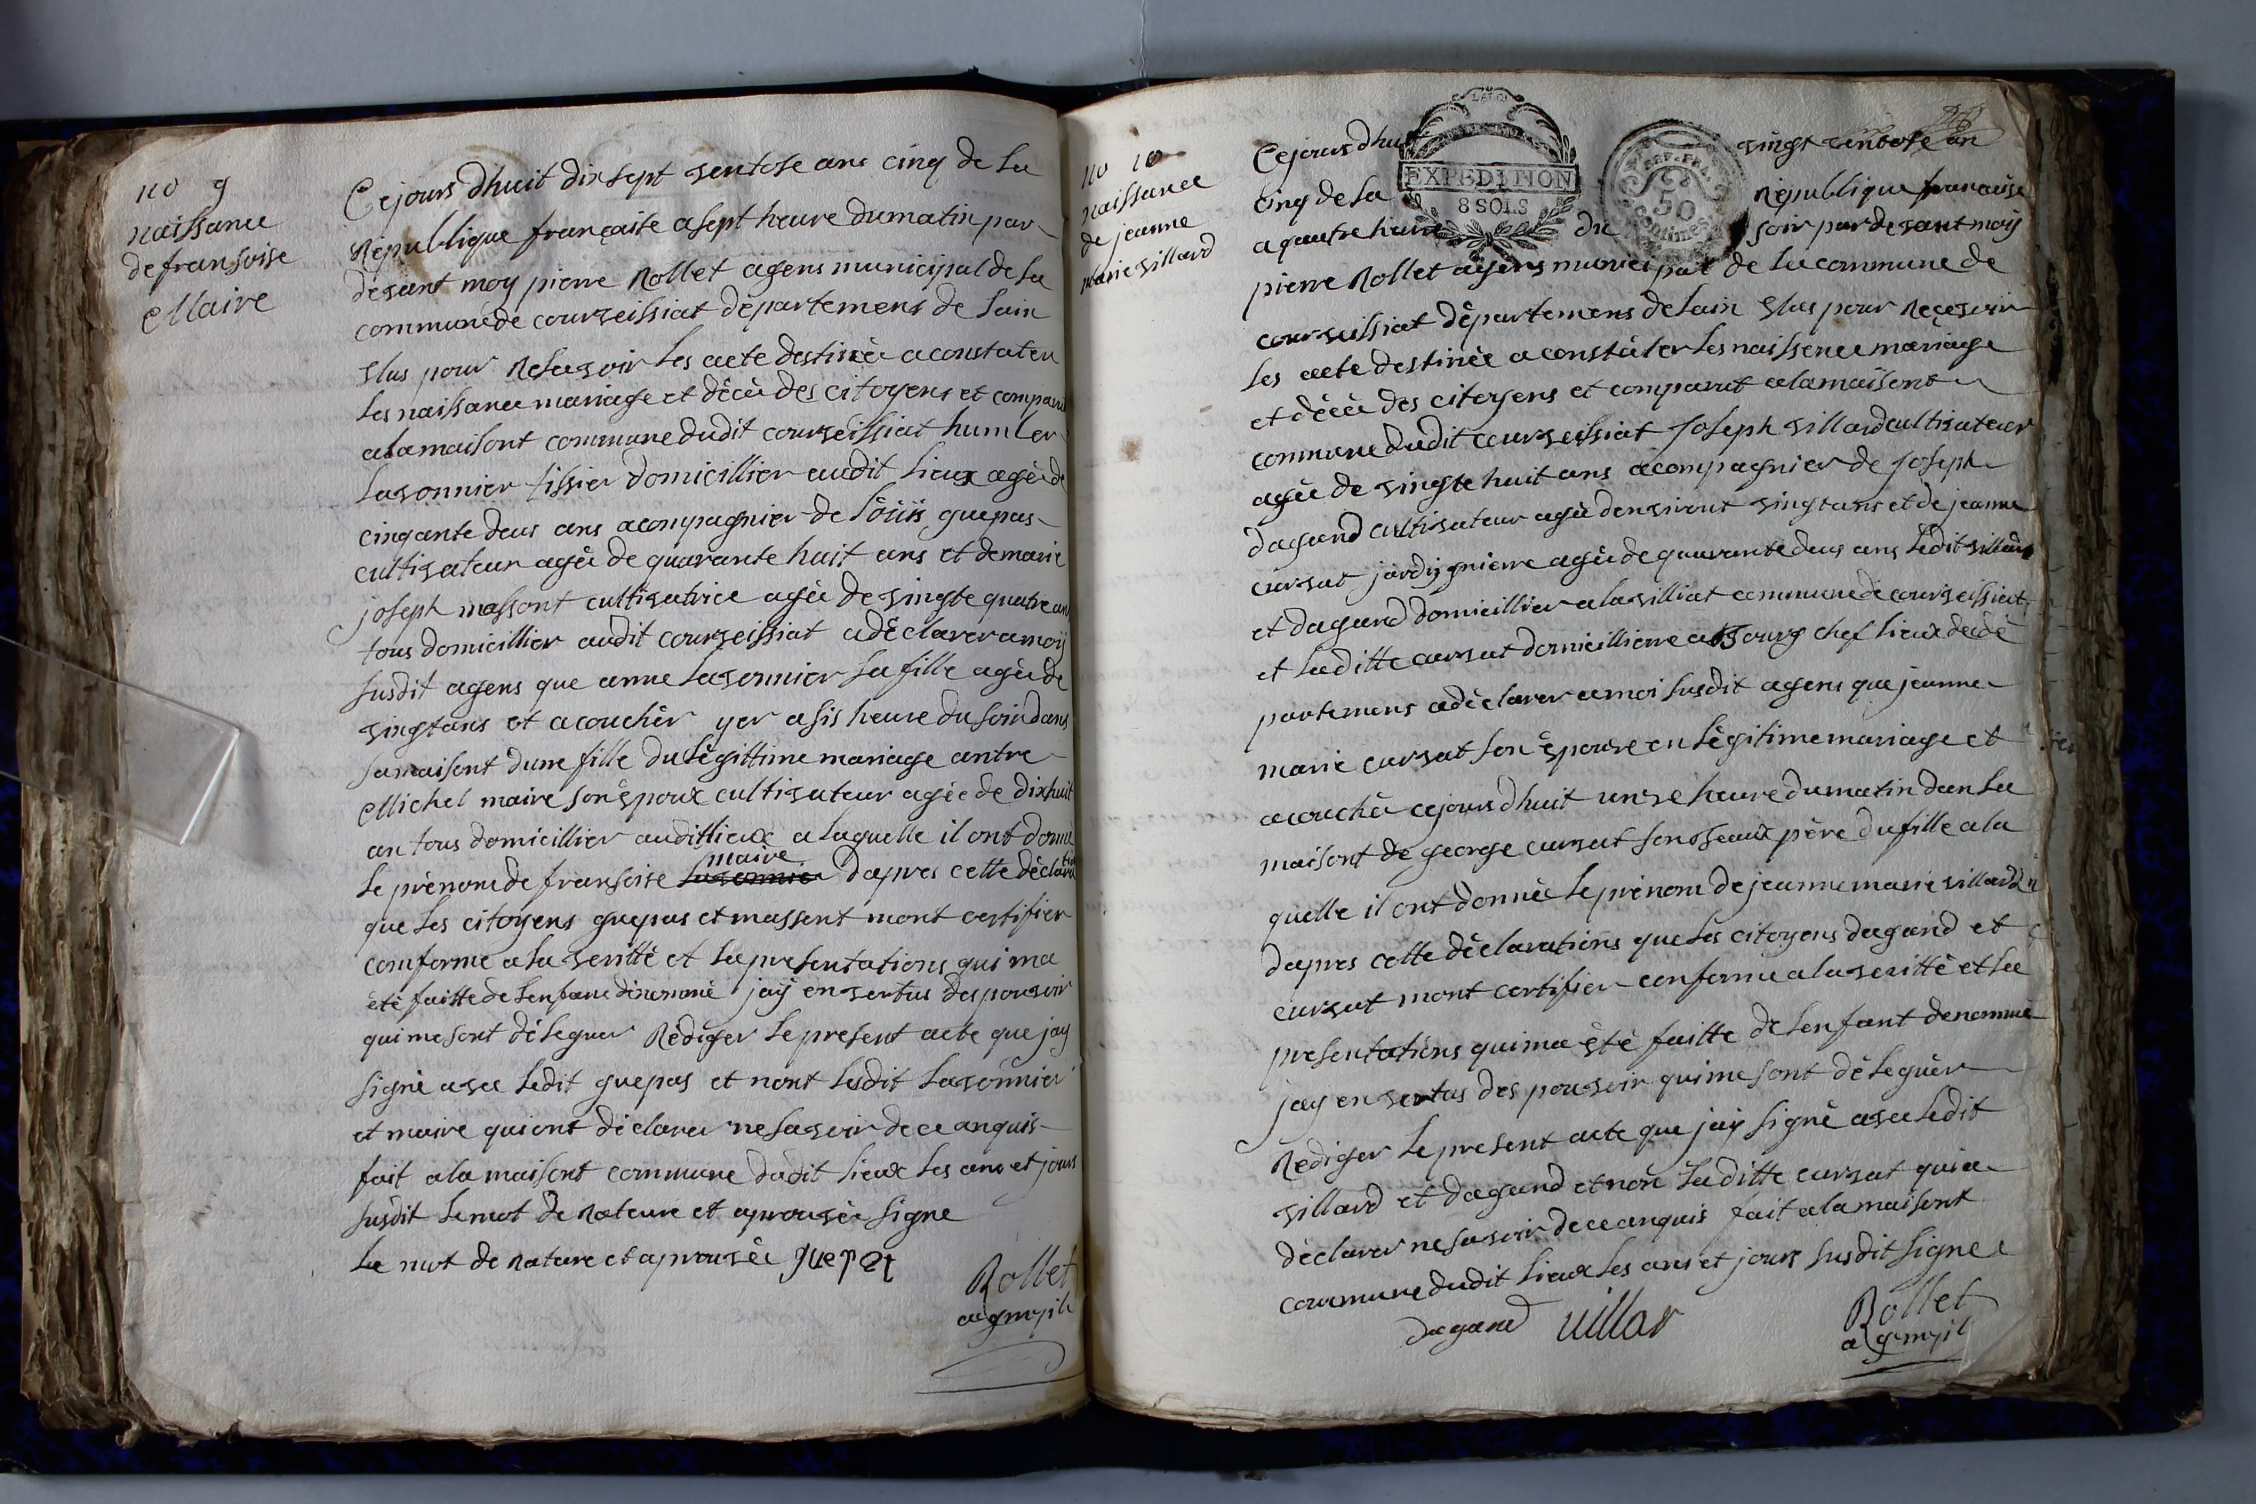 no 9
naissance
de fransoise
Maire
Cejours dhuit dix sept ventose ans cinq de la
Republique françaite a sept heure du matin par
devant moy pierre Rollet agens municipal de la
commune de courveissiat département de lain
elus pour Resavoir les acte destinéé a constater
les naissance mariage et décè des citoyens et comparu
a la maisont commune dudit courveissiat humler
lavonnier tissier domicillier audit lieux agéé de
cinqante deus ans acompagnier de löüis guepas
cultivateur agéé de quarante huit ans et de marie
joseph massont cultivatrice agéé de vingte quatre ans
tous domicillier audit courveissiat a déclarer a moÿ
susdit agens que anne lavonnier sa fille agéé de
vingtans et acouchèr yer a sis heure du soir dans
sa maisont dune fille du légittime mariage antre
Michel maire son époux cultivateur agéé de dixhuit
an tous domicillier audit lieux a laquelle il ont donné
maire
le prénom de fransoise lavonnier dapres cette déclaration
que les citoyens guepas et massont mont certifier
conforme a la veritté et la presentations qui ma
été faitte de lenfant dénommé jaÿ en vertus des pouvoir
qui me sont déleguer Rédiger le present acte que jay
signé avec ledit guepas et nont lesdit lavonnier
et maire qui ont déclarer ne savoir de ce anquis
fait a la maisont commune dudit lieux les ans et jours
susdit le mot de Rateure et aprouvéé signe
le mot de Rature et aprouvéé guepa
Rollet
ag mpil
no 10
naissance
de jeanne
marie villard
EXPEDITION
8 SOLS
REP. FRA.
50
centimes
Cejours dhuit vingt ventose an
cinq de la Republique francaise
a quatre heure du soir par devant moÿ
pierre Rollet agens municipal de la commune de
courveissiat département de lain elus pour Recevoir
les acte destinéé a constàter les naissence mariage
et décéé des citoyens et comparut a la maisont
commune dudit courveissiat Joseph villard cultivateur
agéé de vingte huit ans acompagnier de Joseph
dagand cultivateur agéé denviront vingtans et de jeanne
curvat jardignierre agéé de quarante deus ans ledit villard
et dagand domicillier a la villiat commune de courveissiat
et laditte curvat domicillierre a Bourg chef lieux de dé
partement a déclarer a moi susdit agens que jeanne
marie curvat son épouse en légitime mariage et
acouchéé cejours dhuit unze heure du matin dan la
maisont de george curvat son beaux père du fille a la
quelle il ont donnéé le prénom de jeanne marie villard
dapres cette déclarations que les citoyens dagand et
curvat mont certifier conforme a la veritté et la
presentations qui ma été faitte de lenfant denommé
jay en vertus des pouvoir qui me sont déleguèr
Rediger le present acte que jaÿ signé avec ledit
villard et dagand et non laditte curvat qui a
déclarer ne savoir de ce anquis fait a la maisont
commune dudit lieux les ans et jours susdit signe
dagand villar
Rollet
ag mpil